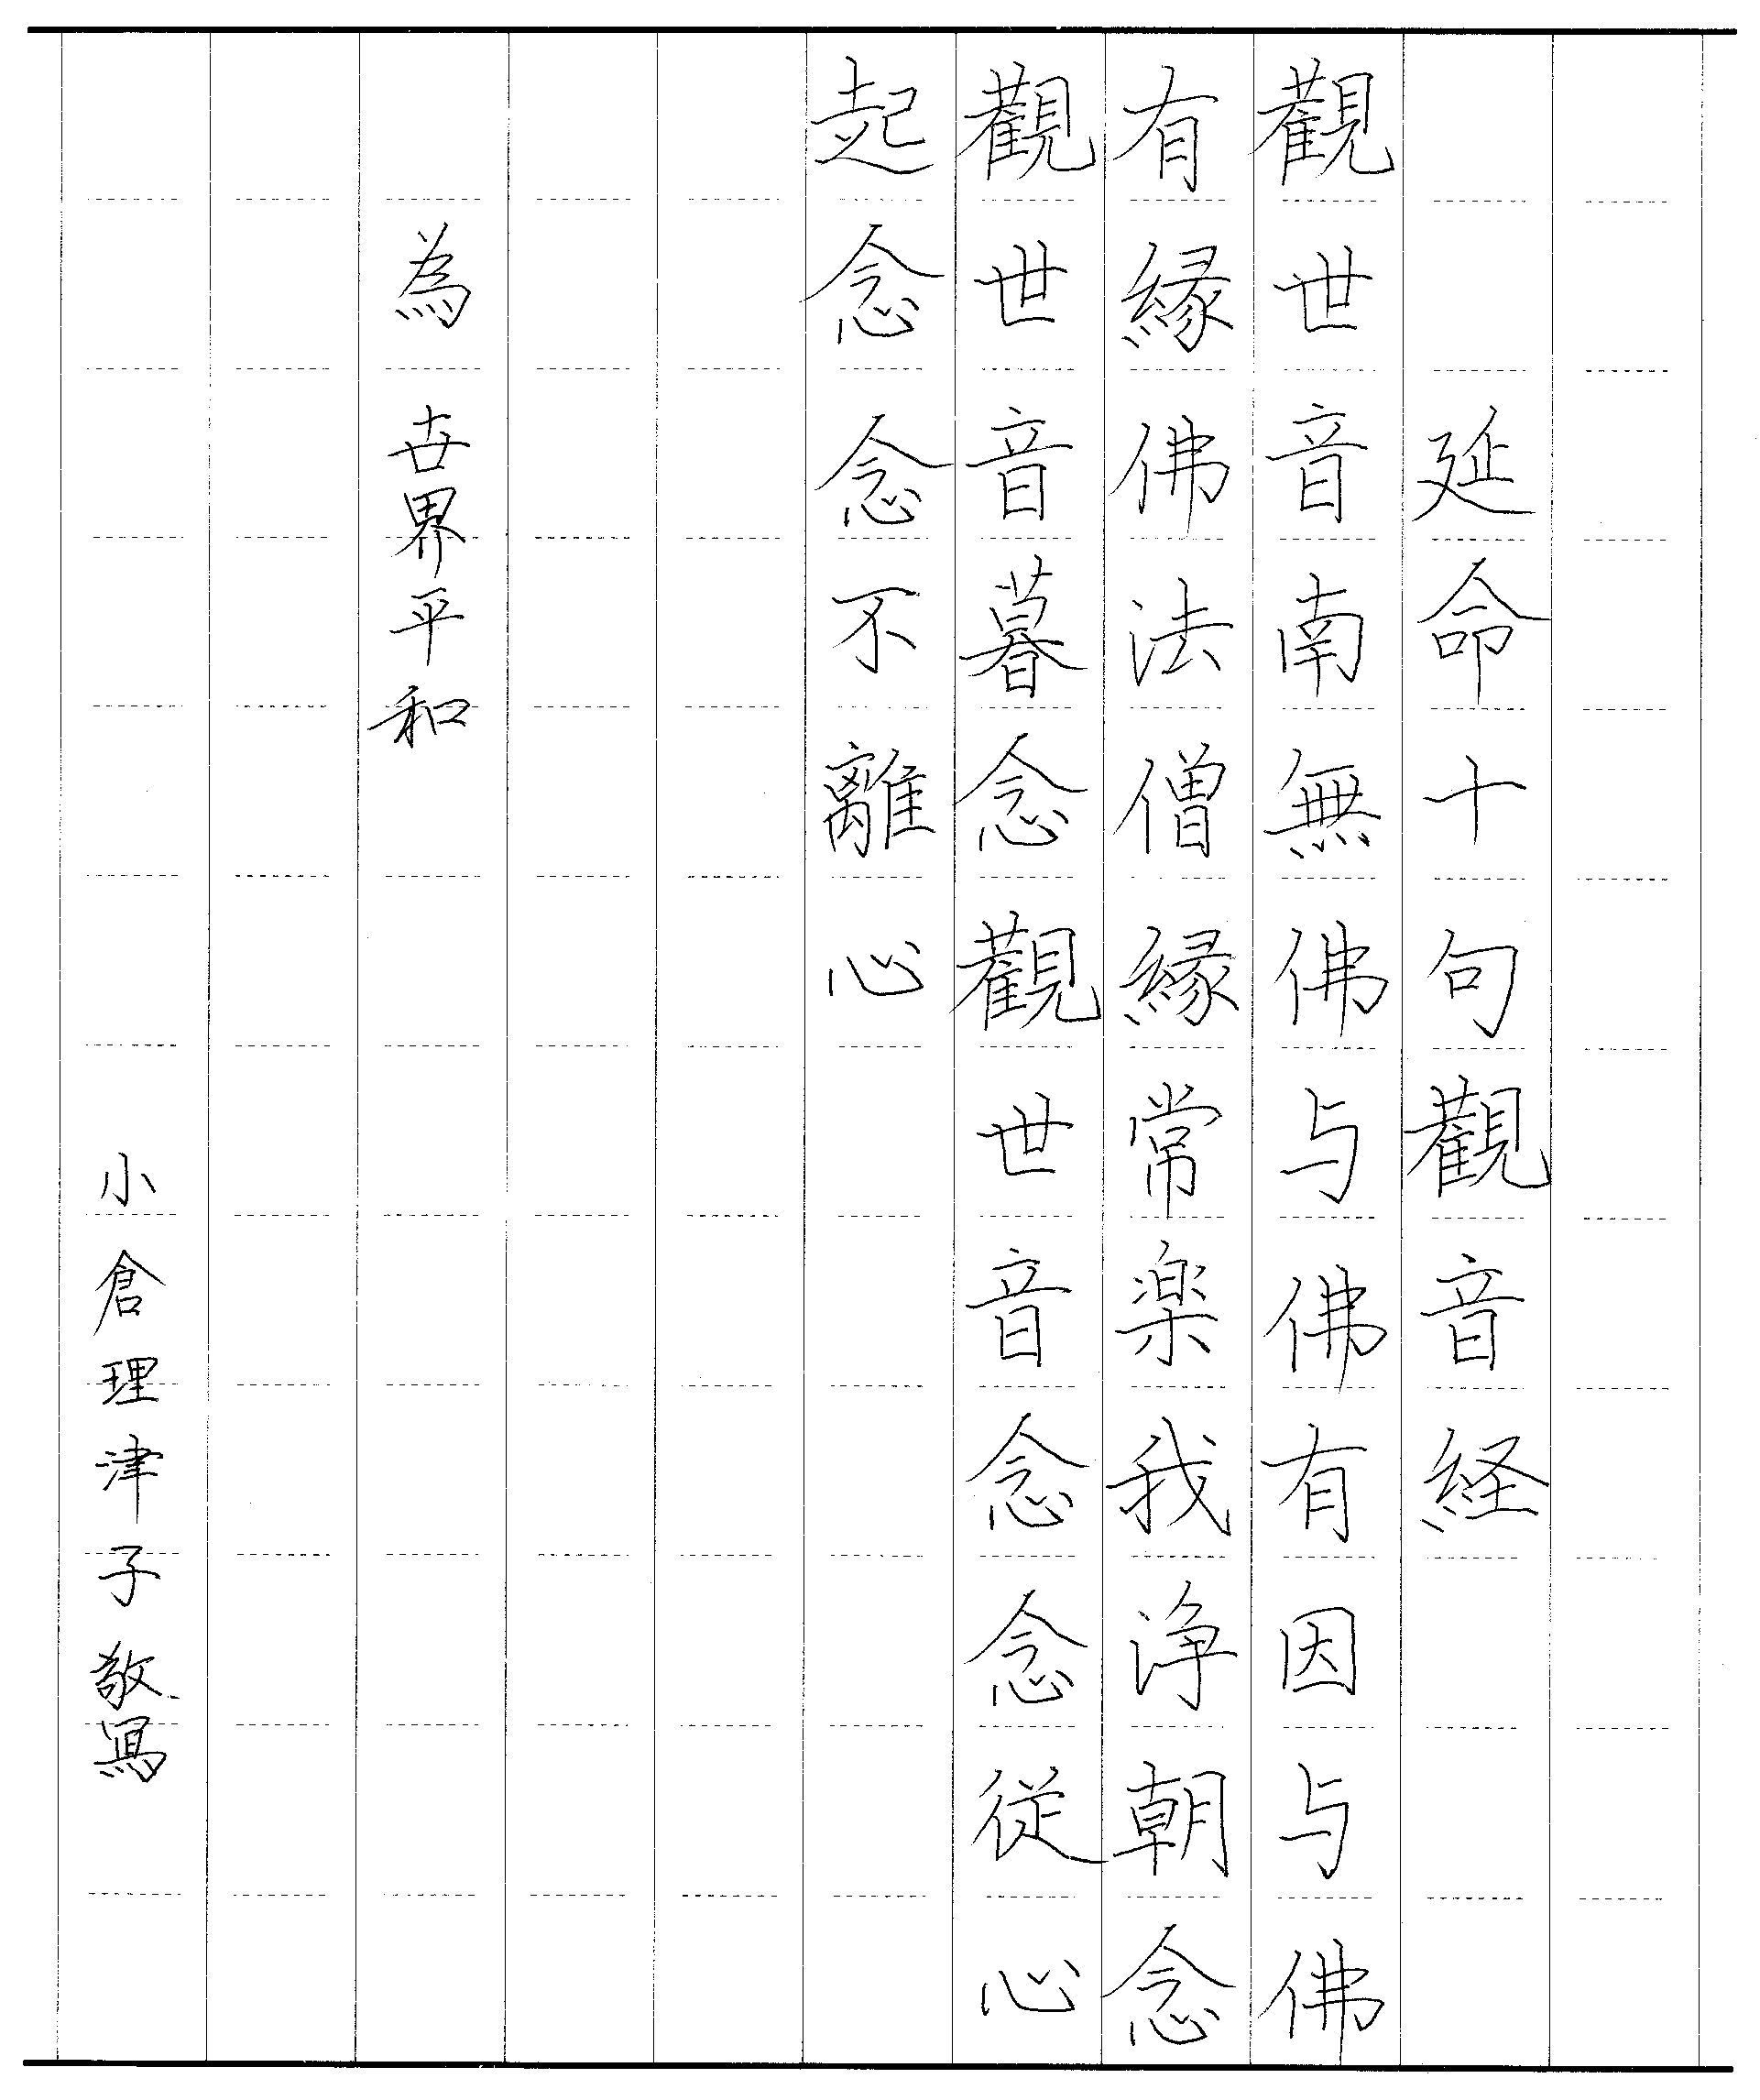 延命十句觀音経
觀世音南無佛与佛有因与佛
有縁佛法僧縁常楽我浄朝念
觀世音暮念觀世音念念従心
起念念不離心
為 世界平和
小倉理津子敬寫